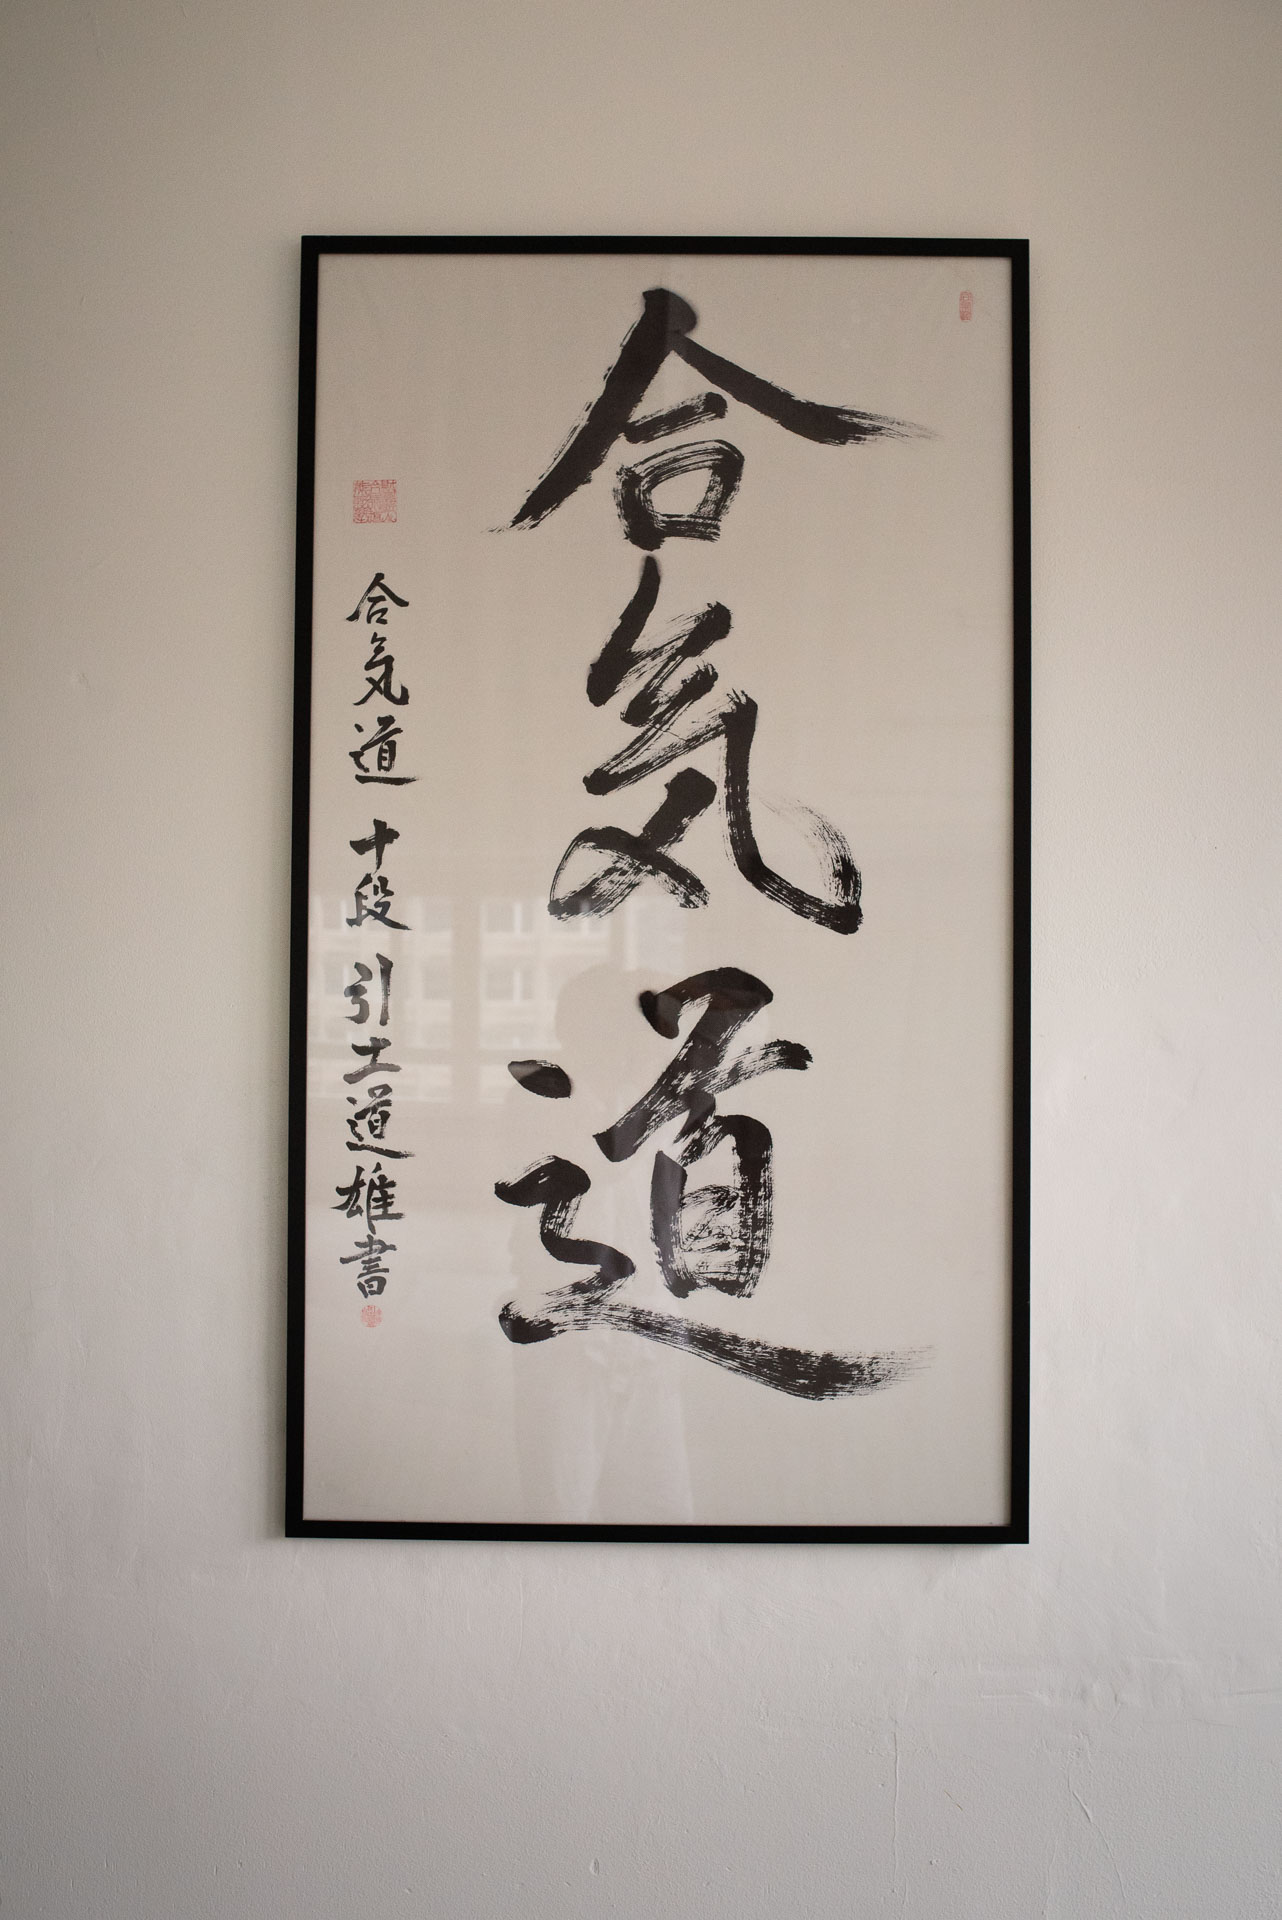 合気道
合気道 十段 引土道雄書